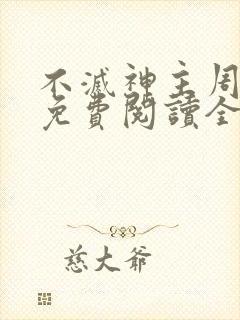 不滅神主周
免費閱讀全
慈大爺